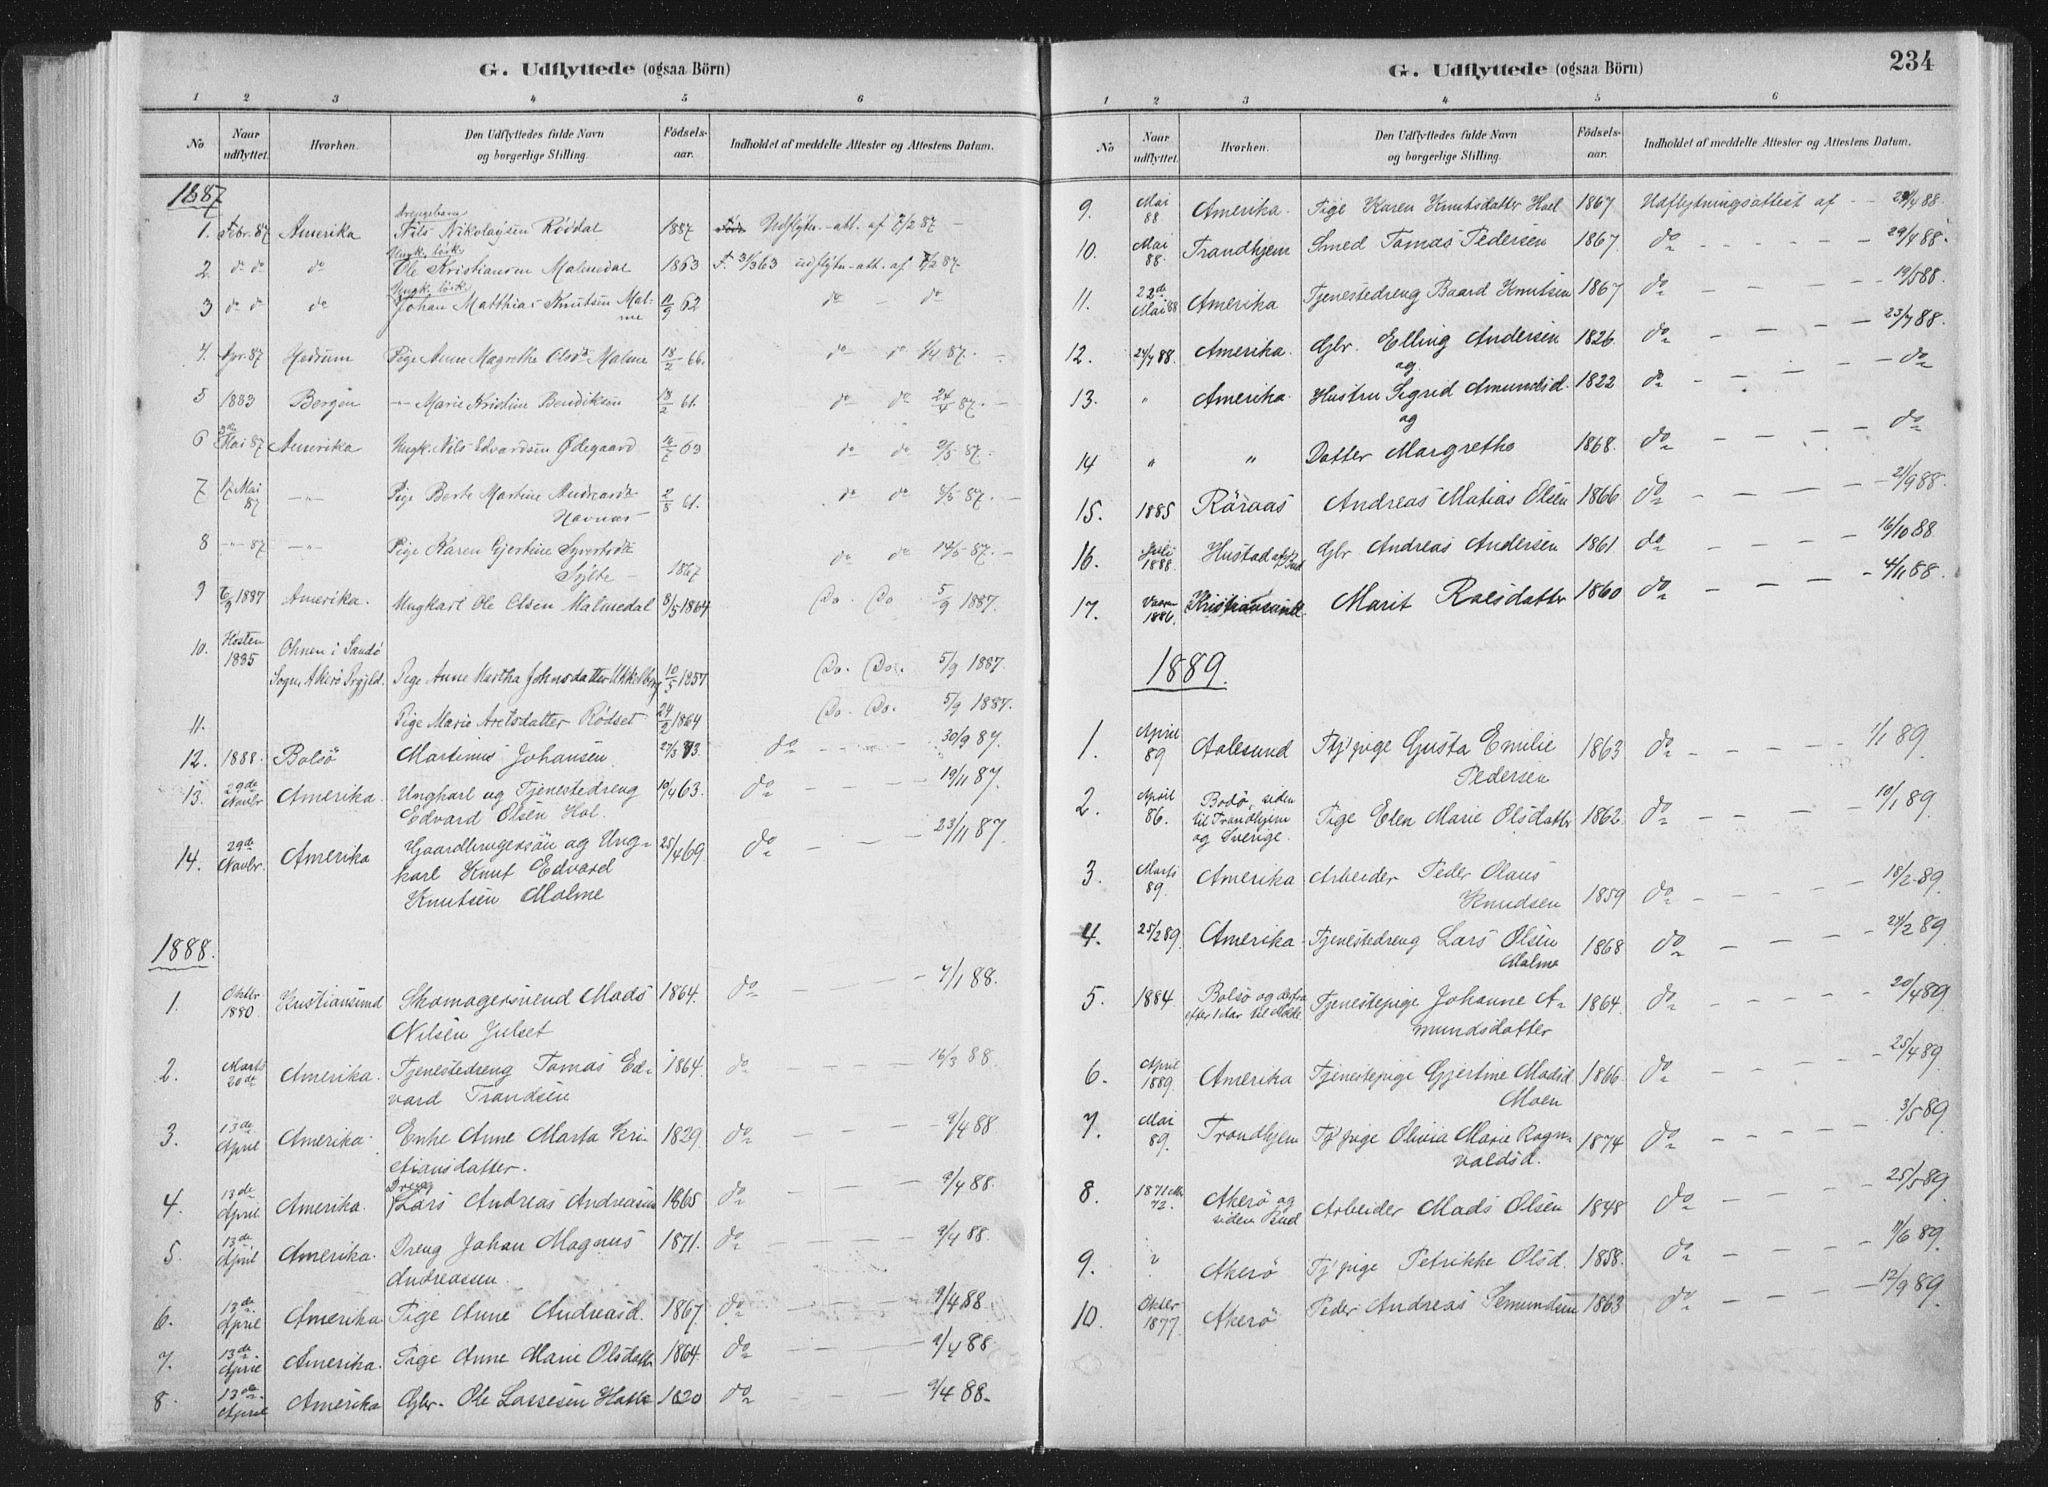 G. Udflyttede (ogsaa Börn)
1 2 3 4 5 6
No Naar udflyttet. Hvorhen. Den Udflyttedes fulde Navn og borgerlige Stilling. Födsels-aar. Indholdet af meddelte Attester og Attestens Datum.
1887
Drengebarn
1. Febr. 87 Amerika Nils Nikolaysen Röddal 1887 Udflytn.-att. af 7/2 87 -
Ungk. lösk.
2. do do do Ole Kristiansen Malmedal 1863 F. 31/3 63 udflytn-att. af 7/2 87.
Ungk. lösk.
3 do do do Johan Matthias Knutsen Mal- 11/9 62 do - do
me
4. Apr. 87 Hedrum Pige Anne Magrethe Olsdr Malme 18/2 66. do do 1/4 87. -
5 1883 Bergen -"- Marie Kristine Bendiksen 18/2 61. do do 24/4 87. -
6 Mai 87 Amerika Ungk. Nils Edvardsen Ødegaard 63 do do 2/5 87.
7 17. Mai 87 -"- Pige Berte Martine Andreasdr 2/8 61. do do 4/5 87. -
Havnas
8 -"- 87 -"- Pige Karen Gjertine Syvertsdr do do 14/5 87. -
Sylte - 1867
9 6/9 1887 Amerika. Ungkarl Ole Olsen Malmedal 8/5 1864 Do. Do 5/9 1887.
10. Høsten 1885 Ohnen i Sandö
Sogn, Akerö Prgjld. Pige Anne Martha Johnsdatter 10/5 1857 Do. Do. 5/9 1887.
11. Pige Marie Aretsdatter Rødset 24/2 1864 Do. Do. 5/9 1887.
12. 1888. Bolsö Martinus Johansen 27/3 43 do - - - 30/9 87.
13. 29de Novbr Amerika. Ungkarl og Tjenestedreng 10/4 63. do - - - 19/11 87.
Edvard Olsen Hol.
14. 29de Novbr. Amerika Gaardbrugersön og Ung- 25/4 69. do - - - 23/11 87.
karl Knut Edvard
Knutsen Malme
1888.
1. Oktbr 1880. Kristiansund Skomagersvend Mads 1864. do - - - 7/1 88.
Nilsen Julset
2. Marts 20de Amerika. Tjenestedreng Tomas Ed- 1864. do - - - 16/3 88.
vard Trondsen
3. 13de April Amerika. Enke Anne Marta Kri- 1829. do - - - 9/4 88
stiansdatter.
4. 13de April Amerika. Dreng Lars Andreas Andreasen 1865 do - - - 9/4 88.
5. 13de April Amerika. Dreng Johan Magnus 1871. do - - - 9/4 88.
Andreassen.
6. 13de April Amerika. Pige Anne Andreasd. 1867. do - - - 9/4 88.
7. 13de April Amerika. Pige Anne Marie Olsdatt. 1864. do - - - 9/4 88.
8. 13de April Amerika Gbr. Ole Lassesen Hatle 1820 do - - - 9/4 88.
234
G. Udflyttede (ogsaa Börn)
1 2 3 4 5 6
No Naar udflyttet. Hvorhen. Den Udflyttedes fulde Navn og borgerlige Stilling. Födsels-aar. Indholdet af meddelte Attester og Attestens Datum.
9. Mai 88 Amerika. Pige Karen Knutsdatter Hoel 1867 Udflytningsattest af - - 24/4 88.
10. Mai 88. Trondhjem Smed Tomas Pedersen 1867. do - - - 29/4 88.
11. 22de Mai 88 Amerika Tjenestedreng Baard Knutsen 1867 do - - - 19/5 88.
12. 24/7 88. Amerika. Gbr. Elling Andersen 1826. do - - - 23/7 88.
og
13. " Amerika. Hustru Sigrid Amundsd. 1822 do - - - do
og
14 " " Datter Margrethe 1868. do - - - do
15. 1885 Röraas Andreas Matias Olsen 1866 do - - - 21/9 88.
16. Juli 1888. Hustad af Bud Gbr Andreas Andersen 1861. do - - - 16/10 88.
17. Vaaren 1886. Kristiansund. Marit Roesdatter 1860 do - - - 4/11 88.
1889.
1. April 89 Aalesund Tj'pige Gusta Emilie 1863 do - - - 1/1 89.
Pedersen
2. April 86. Bodö, siden til Trondhjem og Sverige. Pige Elen Marie Olsdatter 1862. do - - - 10/1 89.
3. Marts 89. Amerika Arbeider Peder Olaus
Knudsen 1859 do - - - 18/2 89.
4. 25/2 89. Amerika. Tjenestedreng Lars Olsen 1868 do - - - 24/2 89.
Malme
5. 1884 Bolsö og derfra efter 1 Aar til Molde Tjenestepige Johanne A- 1864. do - - - 20/4 89
mundsdatter
6. April 1889. Amerika Tjenestepige Gjertine Madsd. 1866. do - - - 25/4 89.
Moen
7. Mai 89. Trondhjem Tj'pige Olivia Marie Ragn- 1874 do - - - 3/5 89.
valdsd.
8. 1871 eller 72. Akerö og siden Bud Arbeider Mads Olsen 1848 do - - - 25/5 89.
9. " Akerö Tj'pige Petrikke Olsd. 1858. do - - - 11/6 89.
10. Oktbr 1877. Akerö Peder Andreas Semundsen 1863 do - - - 12/9 89.